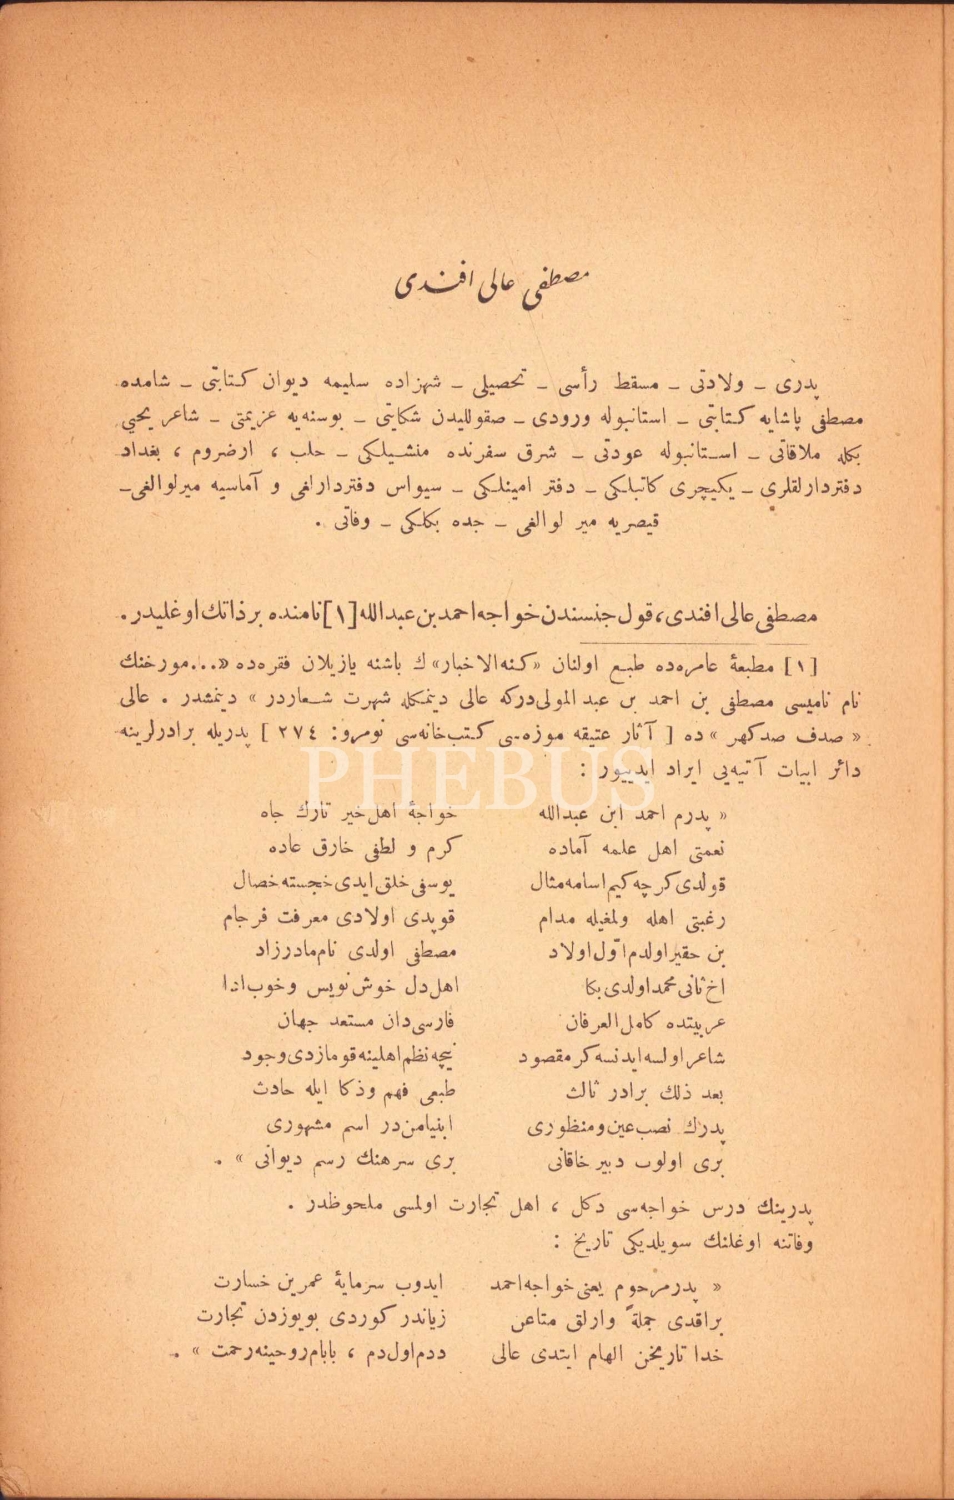 مصطفی عالی افندی
پدری ـ ولادتی ـ مسقط رأسی ـ تحصیلی ـ شهزاده سلیمه دیوان کتابتی ـ شامده
مصطفی پاشایه کتابتی ـ استانبوله ورودی ـ صقوللیدن شکایتی ـ بوسنه‌یه عزیمتی ـ شاعر یحیی
بکله ملاقاتی ـ استانبوله عودتی ـ شرق سفرنده منشیلکی ـ حلب ، ارضروم ، بغداد
دفتردارلقلری ـ یکیچری کاتبلکی ـ دفتر امینلکی ـ سیواس دفتردارلغی و آماسیه میرلوالغی ـ
قیصریه میر لوالغی ـ جده بکلکی ـ وفاتی .
مصطفی عالی افندی، قول جنسندن خواجه احمد بن عبدالله [۱] نامنده بر ذاتك اوغلیدر .
[۱] مطبعهٔ عامره‌ده طبع اولنان «کنه‌الاخبار» ك باشنه یازیلان فقره‌ده «... مورخنك
نام نامیسی مصطفی بن احمد بن عبد المولی‌درکه عالی دیمکله شهرت شعاردر » دینمشدر . عالی
« صدف صدکهر » ده [ آثار عتیقه موزه‌سی کتب‌خانه‌سی نومرو: ٢٧٤ ] پدریله برادرلرینه
دائر ابیات آتیه‌یی ایراد ایدییور :
« پدرم احمد ابن عبدالله خواجهٔ اهل خیر تارك جاه
نعمتی اهل علمه آماده کرم و لطفی خارق عاده
قولدی کرچه کیم اسامه مثال یوسفی خلق ایدی خجسته خصال
رغبتی اهله ولمغیله مدام قویدی اولادی معرفت فرجام
بن حقیر اولدم اوّل اولاد مصطفی اولدی نام مادرزاد
اخ ثانی محمد اولدی بکا اهل دل خوش نویس وخوب ادا
عربیتده کامل العرفان فارسی‌دان مستعد جهان
شاعر اولسه ایدنسه کر مقصود نیچه نظم اهلینه قومازدی وجود
بعد ذلك برادر ثالث طبعی فهم وذکا ایله حادث
پدرك نصب عین ومنظوری ابنیامن‌در اسم مشهوری
بری اولوب دبیر خاقانی بری سرهنك رسم دیوانی » .
پدرینك درس خواجه‌سی دکل ، اهل تجارت اولمسی ملحوظدر .
وفاتنه اوغلنك سویلدیکی تاریخ :
« پدر مرحوم یعنی خواجه احمد ایدوب سرمایهٔ عمرین خسارت
براقدی جملةً وارلق متاعن زیاندر کوردی بویوزدن تجارت
خدا تاریخن الهام ایتدی عالی ددم اول دم ، بابام روحینه رحمت » .
PHEBUS